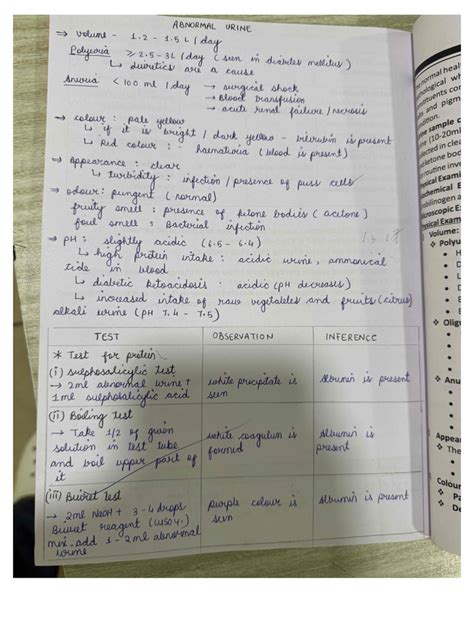 ABNORMAL URINE
⇒ volume - 1.2 - 1.5 L / day
Polyuria ≥ 2.5 - 3L / day (seen in diabetes mellitus)
↳ diuretics are a cause
Anuria < 100 ml / day → surgical shock
→ Blood transfusion
→ acute renal failure / necrosis
⇒ colour : pale yellow
↳ if it is bright / dark yellow - bilirubin is present
↳ Red colour : - haematuria (blood is present)
⇒ appearance : clear
↳ turbidity : infection / presence of puss cells
⇒ odour : pungent (normal)
fruity smell : presence of ketone bodies (acetone)
foul smell : Bacterial infection
⇒ pH : slightly acidic (6.5 - 6.4)
↳ high protein intake : acidic urine, ammonical
tide in blood
↳ diabetic ketoacidosis : acidic (pH decreases)
↳ increased intake of raw vegetables and fruits (citrus)
alkali urine (pH 7.4 - 7.5)
TEST OBSERVATION INFERENCE
* Test for protein
(i) sulphosalicylic test
→ 2ml abnormal urine + white precipitate is Albumin is present
1ml sulphosalicylic acid seen
(ii) Boiling test
→ Take 1/2 of given white coagulum is Albumin is
solution in test tube formed present
and boil upper part of
it
(iii) Biuret test
→ 2ml NaOH + 3 - 4 drops purple colour is Albumin is present
Biuret reagent (CuSO4. seen
mix. add 1 - 2ml abnormal
urine
normal heal
hological wh
stituents con
and pigm
dition.
ne sample c
(10-20ml
ected in clea
ketone bod
routine inve
ysical Exami
ochemical E
obilinogen a
Microscopic Ex
ysical Examin
Volume:
Polyu
Oligu
Anu
Appear
The
Colour
Pa
De